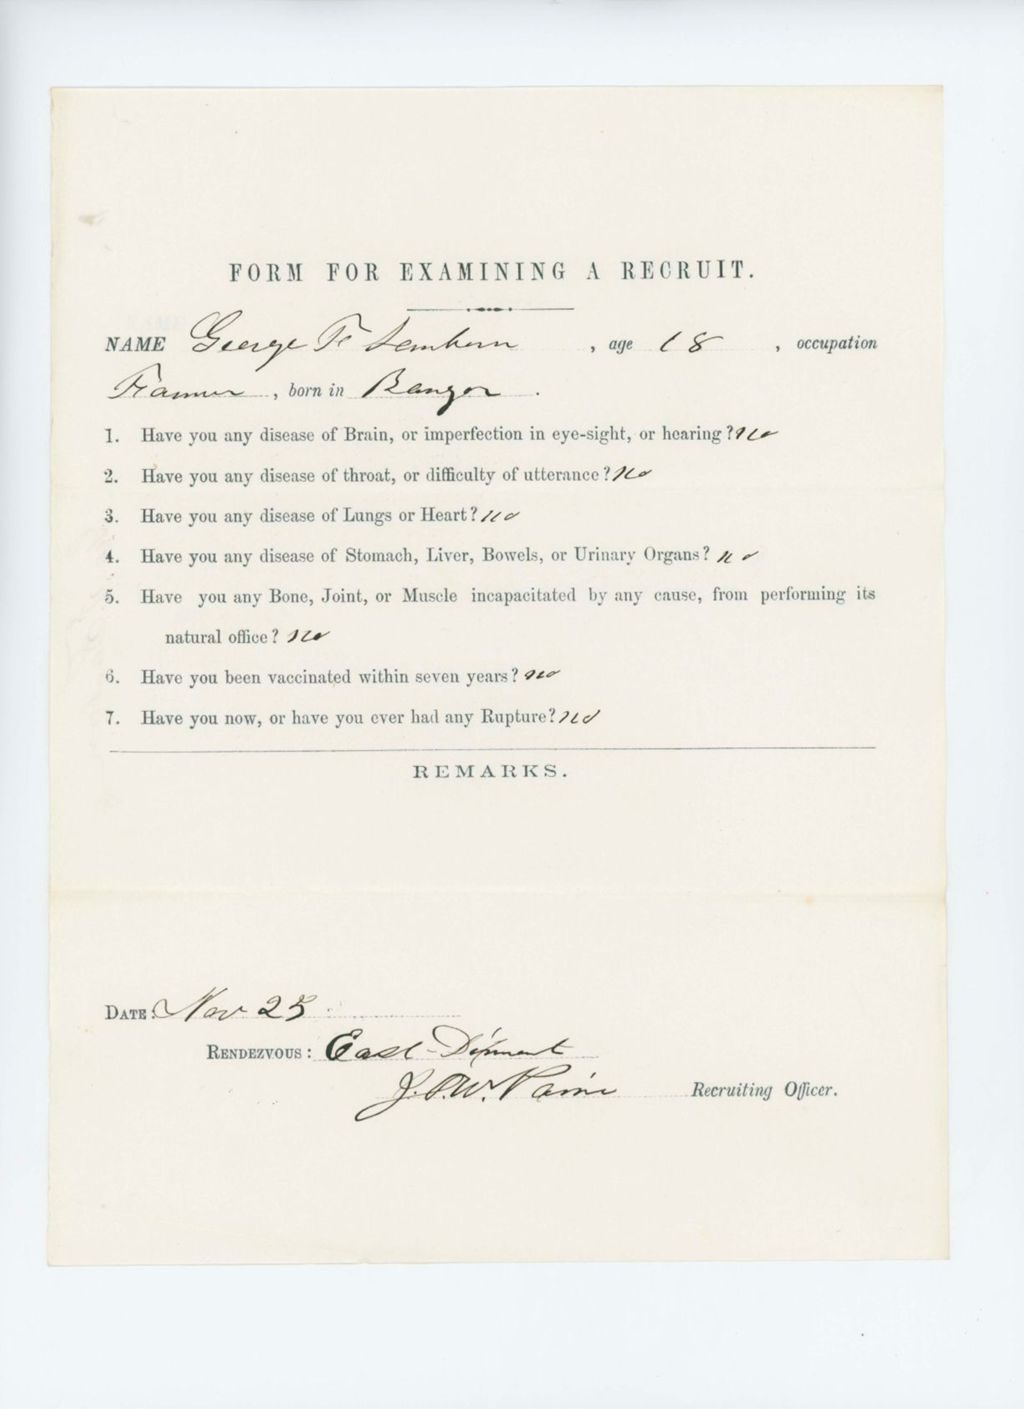 FORM FOR EXAMINING A RECRUIT.
NAME George F Lamborn, age 18, occupation
Framer, born in Bangor.
1. Have you any disease of Brain, or imperfection in eye-sight, or hearing? No
2. Have you any disease of throat, or difficulty of utterance? No
3. Have you any disease of Lungs or Heart? No
4. Have you any disease of Stomach, Liver, Bowels, or Urinary Organs? No
5. Have you any Bone, Joint, or Muscle incapacitated by any cause, from performing its
natural office? No
6. Have you been vaccinated within seven years? No
7. Have you now, or have you ever had any Rupture? No
REMARKS.
DATE: Nov 25
RENDEZVOUS: East-Dixmont
J.P.W. Paine Recruiting Officer.